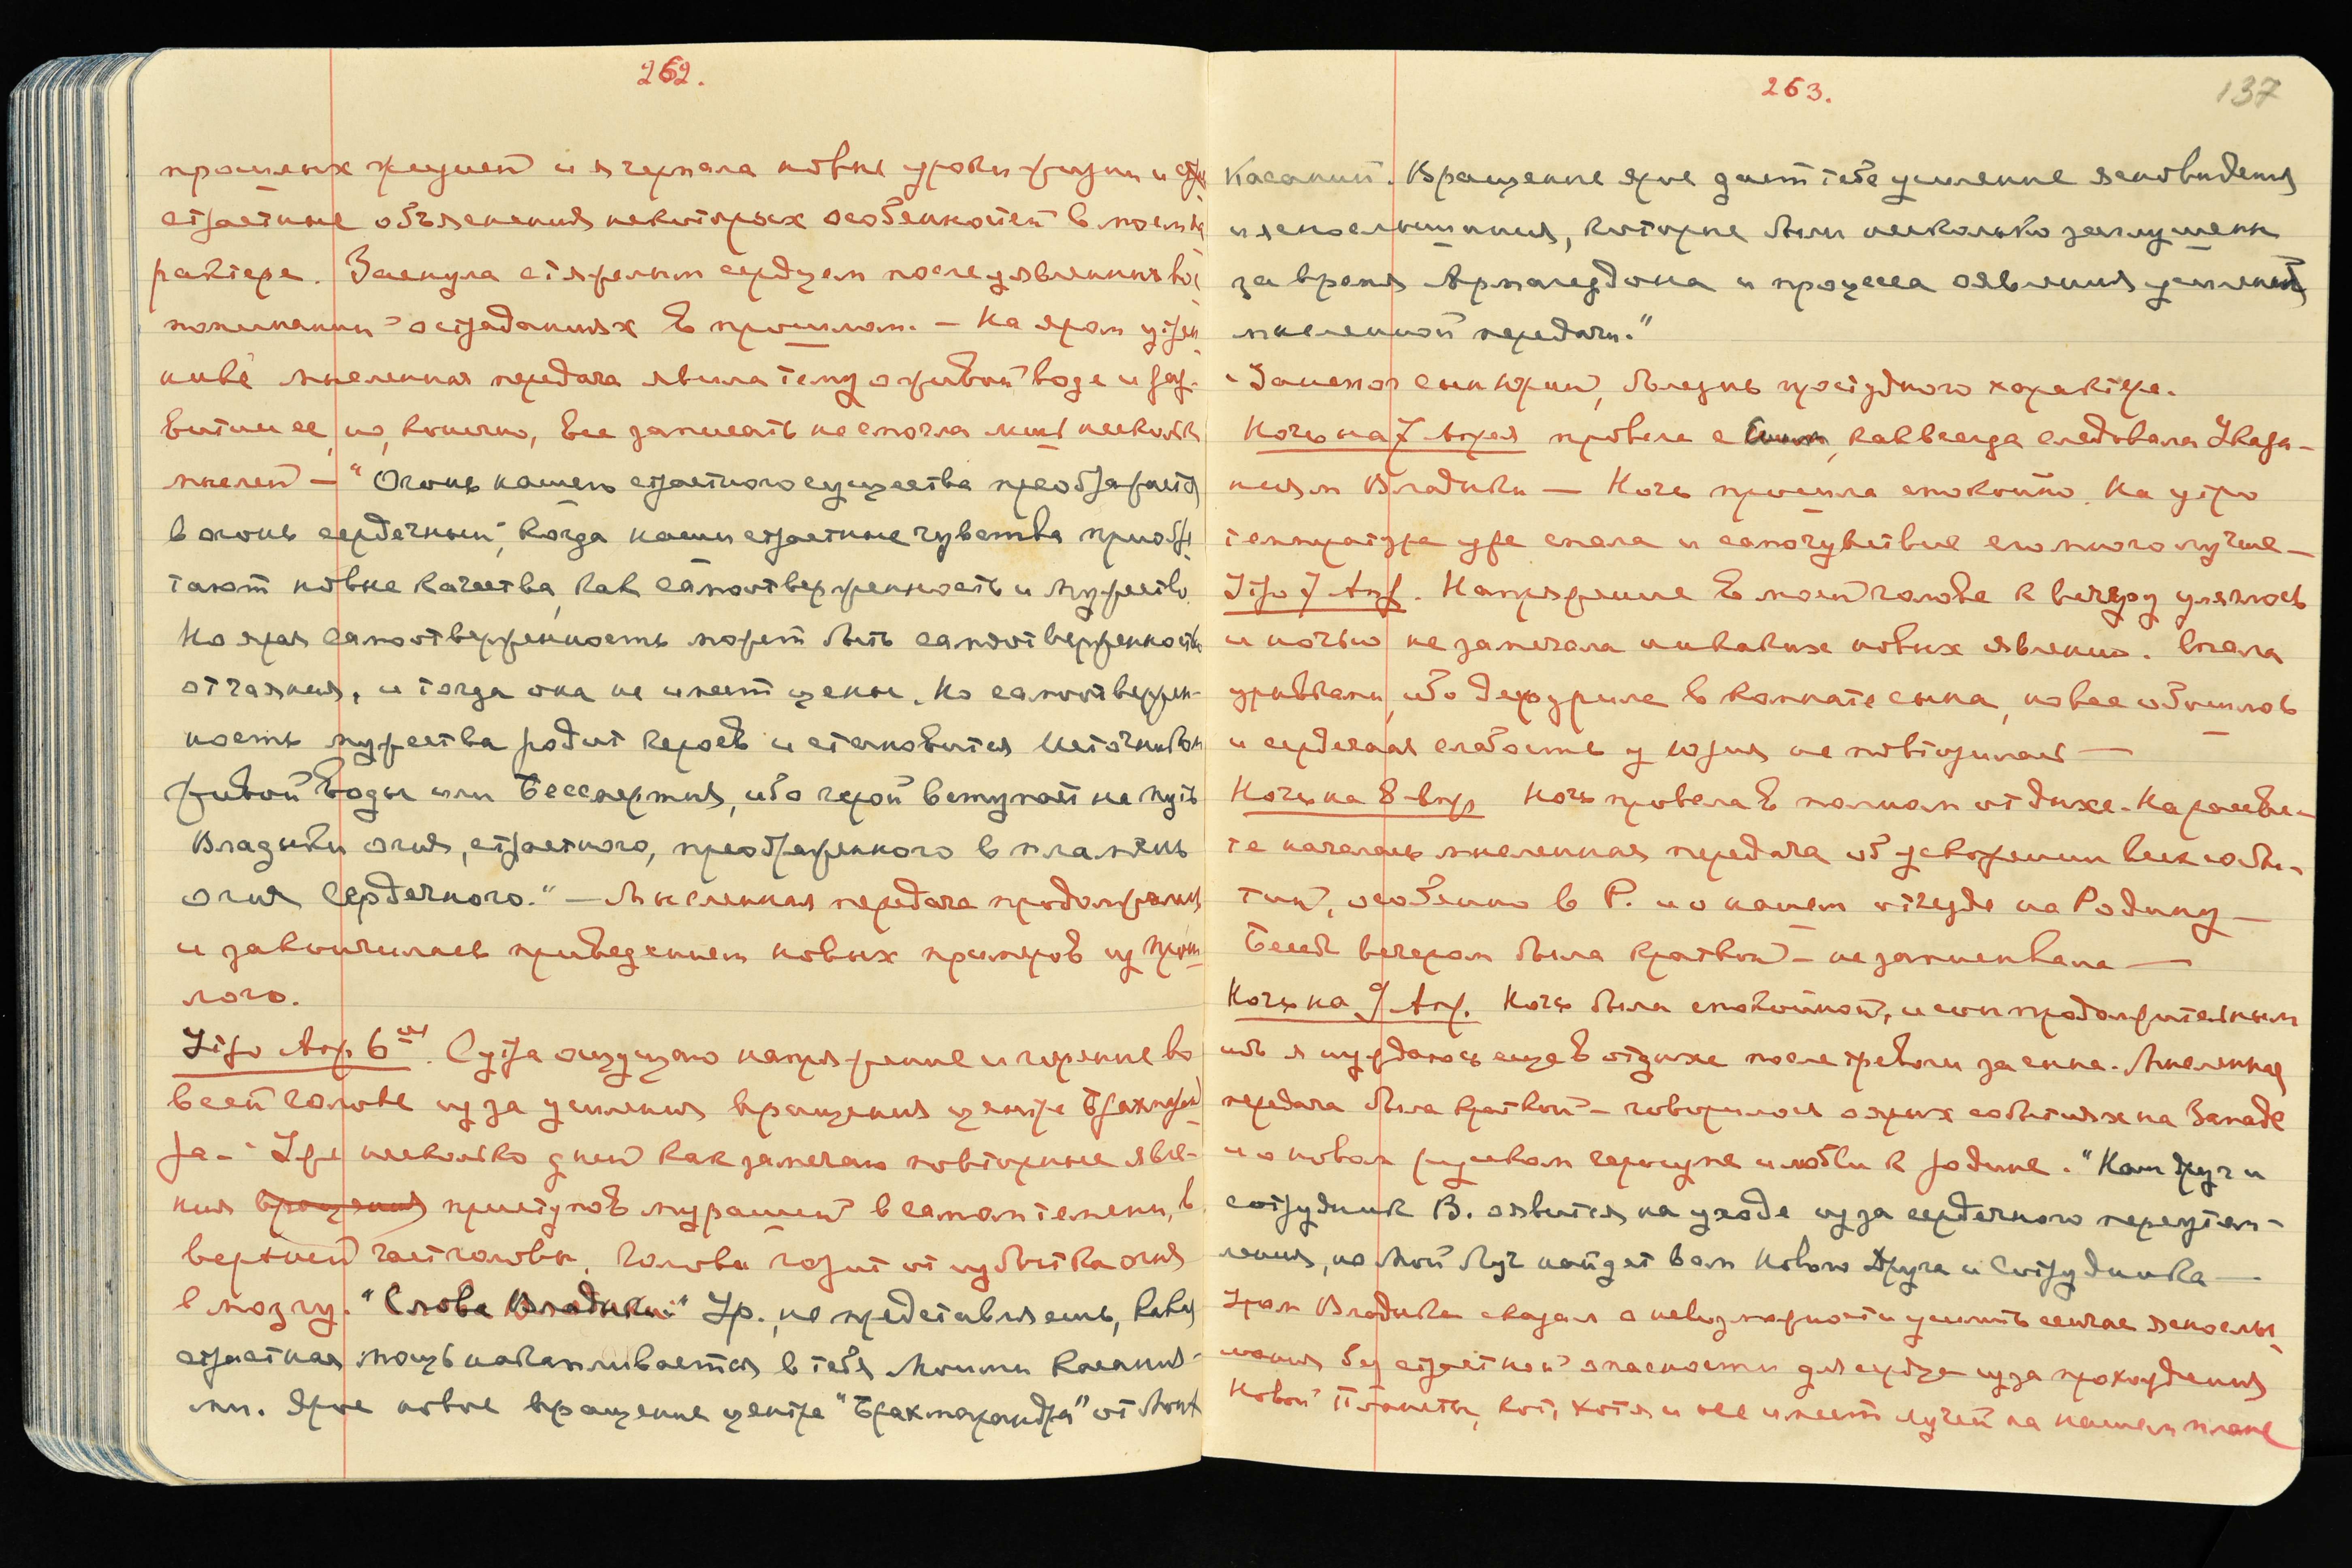 262.
прошлых жизней и я черпала новые уроки жизни и
страстные объяснения некоторых особенностей в моем
рактере. Заснула с тяжелым сердцем после явления
поминании о страданиях в прошлом. – На яром
ниве мысленная передача явила тему о живой воде и
витии ее, но, конечно, все записать не смогла лишь несколько
мыслей – "Огонь нашего страстного существа преображается
в огонь сердечный, когда наши страстные чувства приобре
тают новые качества, как самоотверженность и мужество.
Но ярая самоотверженность может быть самоотверженность
отчаяния, и тогда она не имеет цены. Но самоотвержен-
ность мужества родит героев и становится источником
живой воды или Бессмертия, ибо герой вступает на путь
Владыки огня, страстного, преображенного в пламень
огня Сердечного." – Мысленная передача продолжалась
и закончилась приведением новых примеров из прош-
лого.
Утро Апр. 6го. С утра ощущаю напряжение и горение во
всей голове из за усиления вращения центра Брахмаран
ра – Уже несколько дней как замечаю повторные явле-
ния вращения приступов мурашей в самом темени, в
верхней части головы. Голова горит от избытка огня
в мозгу. "Слова Владыки:" Ур., не представляешь, какая
страстная мощь накапливается в тебе Моими касания-
ми. Ярое новое вращение центра "Брахмарандра" от Моих
263.
137
Касаний. Вращение ярое дает тебе усиление ясновидения
и яснослышания, которые были несколько заглушены
за время Армагеддона и процесса оявления усиленной
мысленной передачи."
Занемог сын Юрий, болезнь простудного характера.
Ночь на 7 Апреля провела с Сыном, как всегда следовала Указа-
ниям Владыки – Ночь прошла спокойно. На утро
температура уже спала и самочувствие его много лучше –
Утро 7 Апр. Напряжение в моей голове к вечеру улеглось
и ночью не замечала никаких новых явлений. Спала
урывками, ибо дежурила в комнате сына, но все обошлось
и сердечная слабость у Юрия не повторилась –
Ночь на 8-Апр Ночь провела в полном отдыхе. На рассве-
те началась мысленная передача об ускорении всех собы-
тий, особенно в Р. и о нашем отъезде на Родину –
Беседа вечером была краткой – не записывала –
Ночь на 9 Апр. Ночь была спокойной, и сон продолжительным
ибо я нуждаюсь еще в отдыхе после тревоги за сына. Мысленная
передача была краткой – говорилось о ярых событиях на Западе
и о новом русском героизме и любви к родине. "Наш друг и
сотрудник В. оявится на уходе из за сердечного переутом-
ления, но Мой Луч найдет вам Нового Друга и Сотрудника –
Утром Владыка сказал о невозможности усилить сейчас яснослы-
шания без страстной опасности для сердца из за прохождения
Новой Планеты, кот., хотя и не имеет лучей на нашем плане